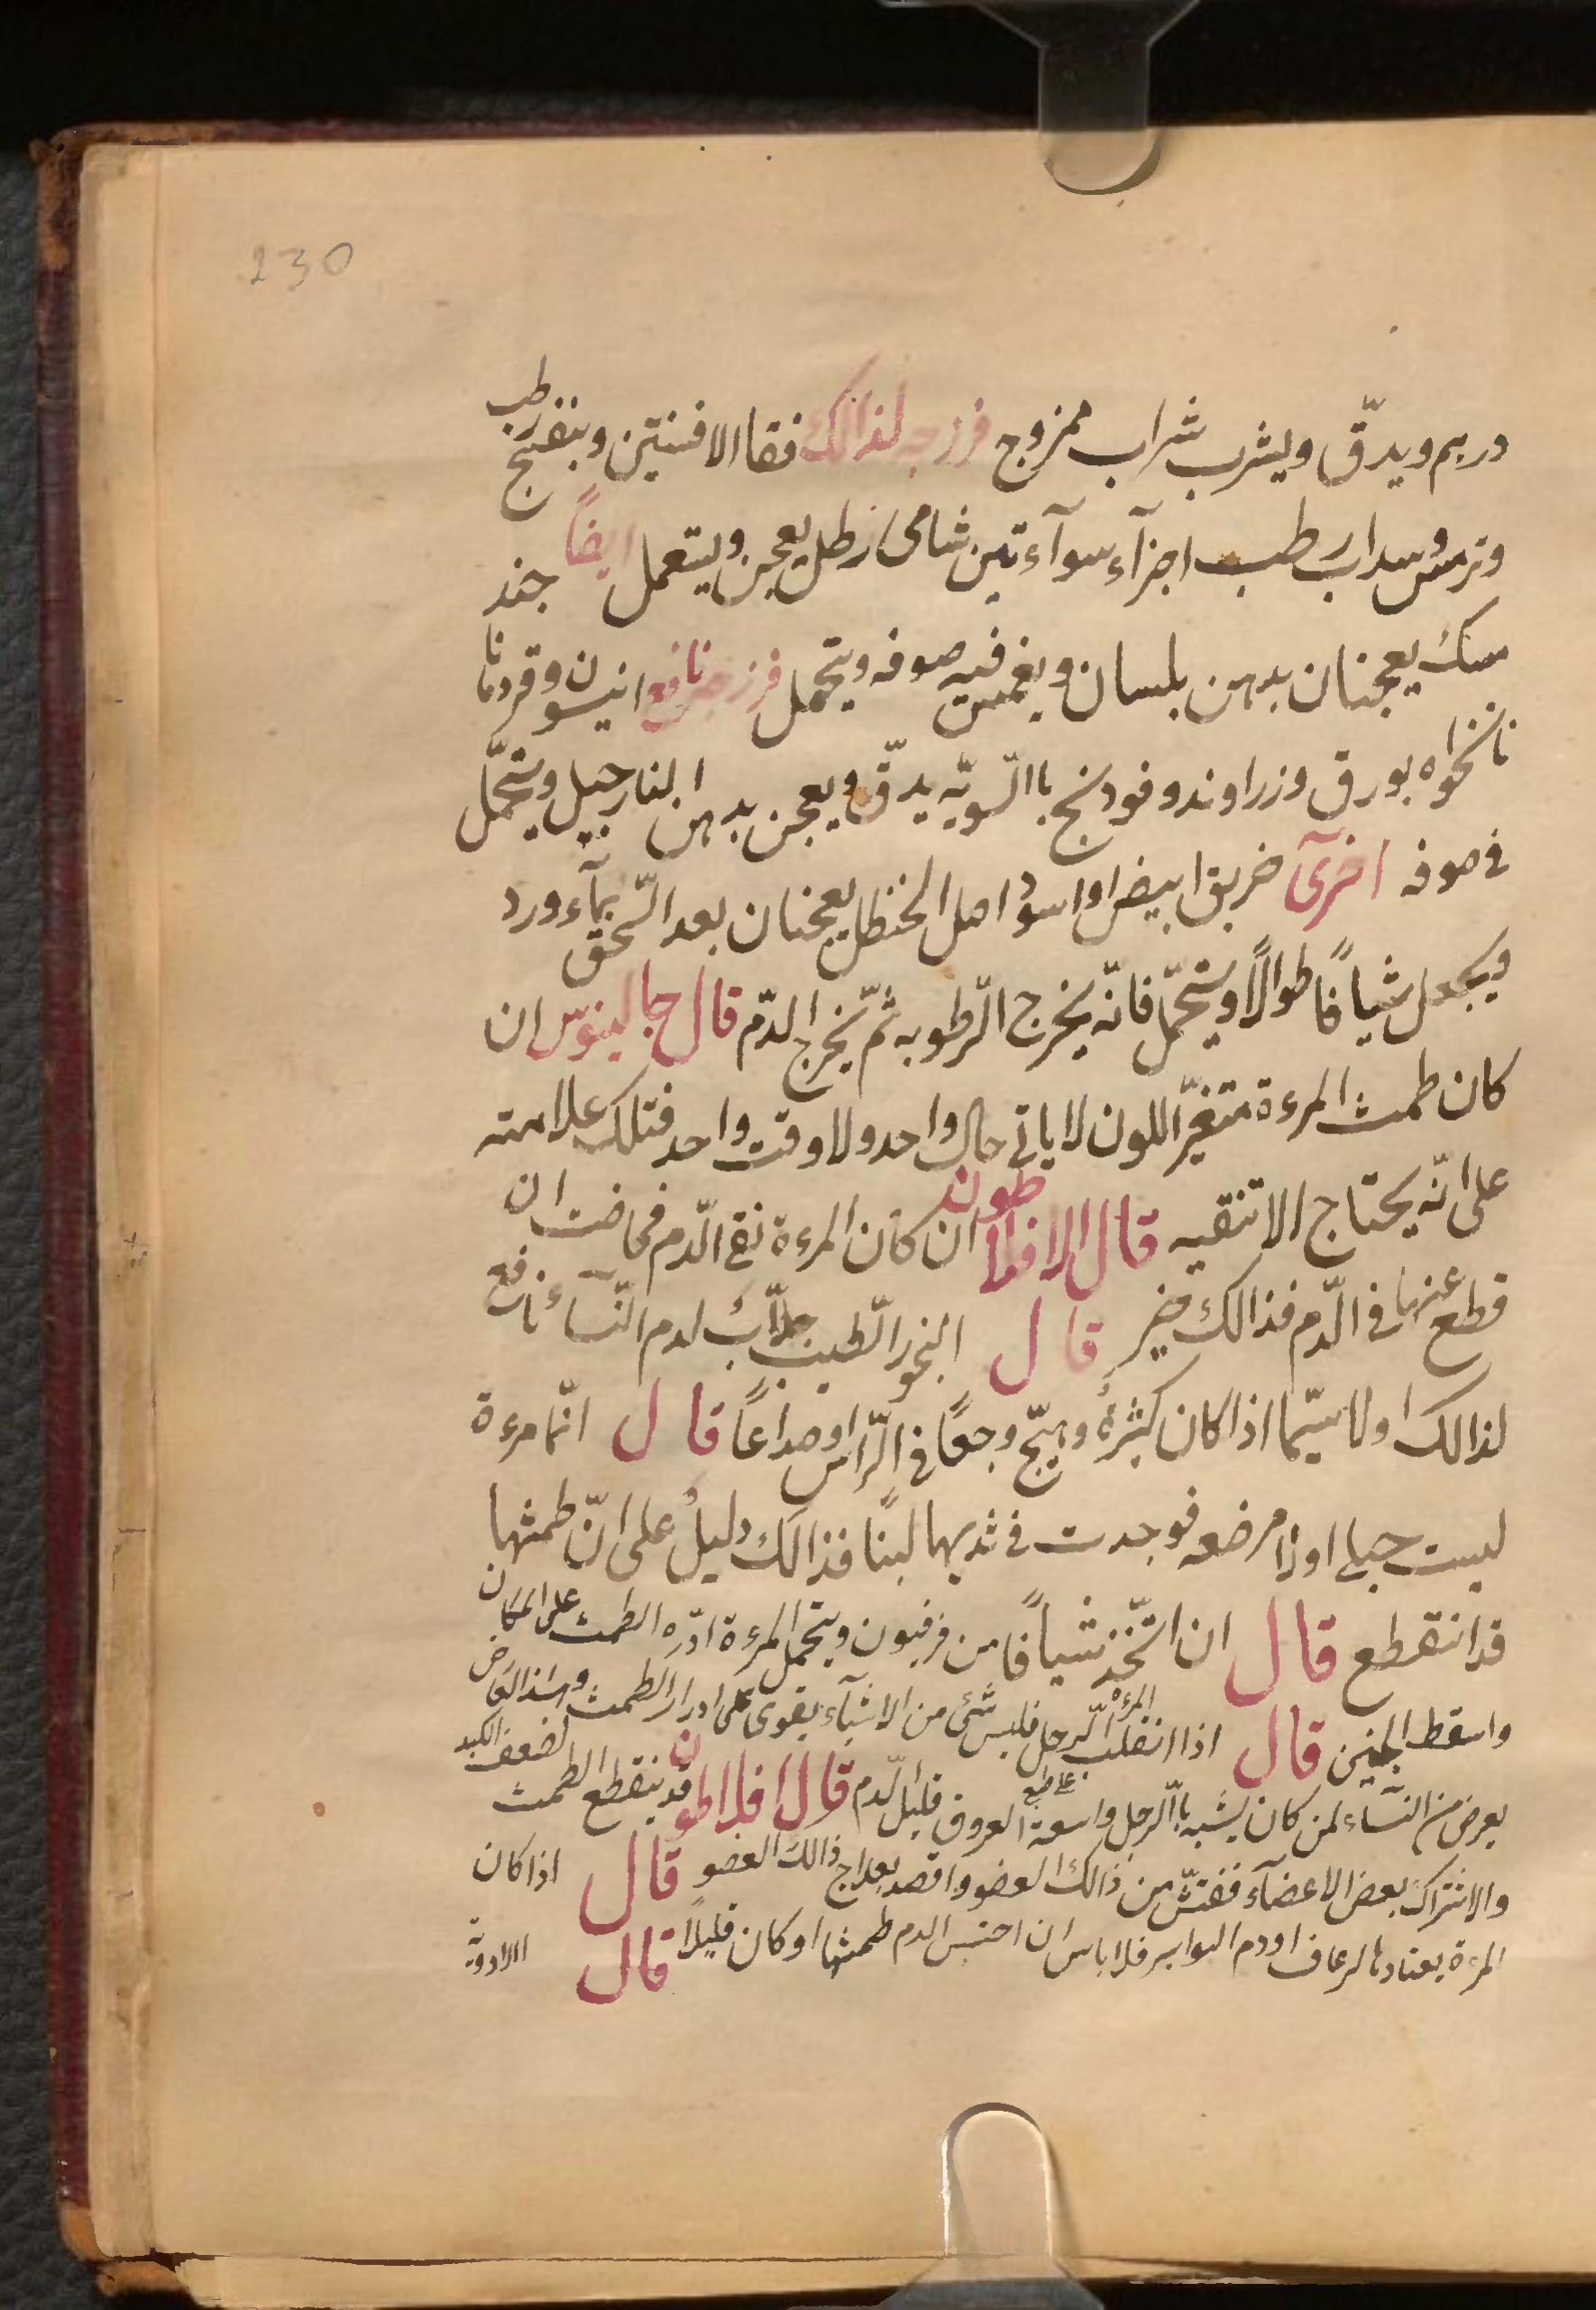 230
درهم ويدقّ ويشرب بشراب ممزوج فرزجه لذالك فقا الافسنتين وبنفسج رطب
وترمس وسداب رطب اجزآء سوآء تين شامى رطل يعجن ويتعمل ايضاً جند
مسك يعجنان بدهن بلسان ويغمس فيه صوفه ويتحمل فرزجه نافع انيسون وقردمانا
نانخواه بورق وزراوند وفودنج باالسّويّه يدقّ ويعجن بدهن النارجيل ويتحمّل
فى صوفه اخرآى خربق ابيض او اسود اصل الحنظل يعجنان بعد السّحق بمآء ورد
ويجعل شيافًا طوالًا ويتحمّل فانّه يخرج الرّطوبه ثمّ يخرج الدّم قال جالينوس ان
كان طمث المرءة متغيّر اللون لا ياتى حال واحد ولا وقت واحد فتلك علامته
على انّه يحتاج الا تنقيه قال الافلاطون ان كان المرءة نقى الدّم فحاضت ان
قطع عنها فى الدّم فذالك خير قال البخور الطّيب جلّابٌ لدم النّسآء نافع
لذالك اولا سيّما اذا كان كثيرهُ وهيّج وجعًا فى الرّاس او صداعًا قال انّما مرءة
ليست حبلى او لا مرضعه فوجدت فى ثديها لبنًا فذالك دليلٌ على انّ طمثها
قد انقطع قال ان اتّخذ شيافًا من فرفيون ويتحمل المرءة ادّره الطمث على المكان
واسقط الجنين قال اذا انقلب المرءة الرجل فليس شئ من الاشيآء يقوى على ادرار الطمث وهذا العارض
يعرض من النسآء لمن كان يشبه باالرجل واسعة العروق قليل الدّم قال افلاطون قد ينقطع الطمث لضعف الكبد
والاشتراك بعض الاعضآء ففتّش من ذالك العضو واقصد بعلاج ذالك العضو قال اذا كان
المرءة يعتادها الرعاف او دم البواسير فلا باس ان احتبس الدم طمثها او كان قليلًا قال الادوية